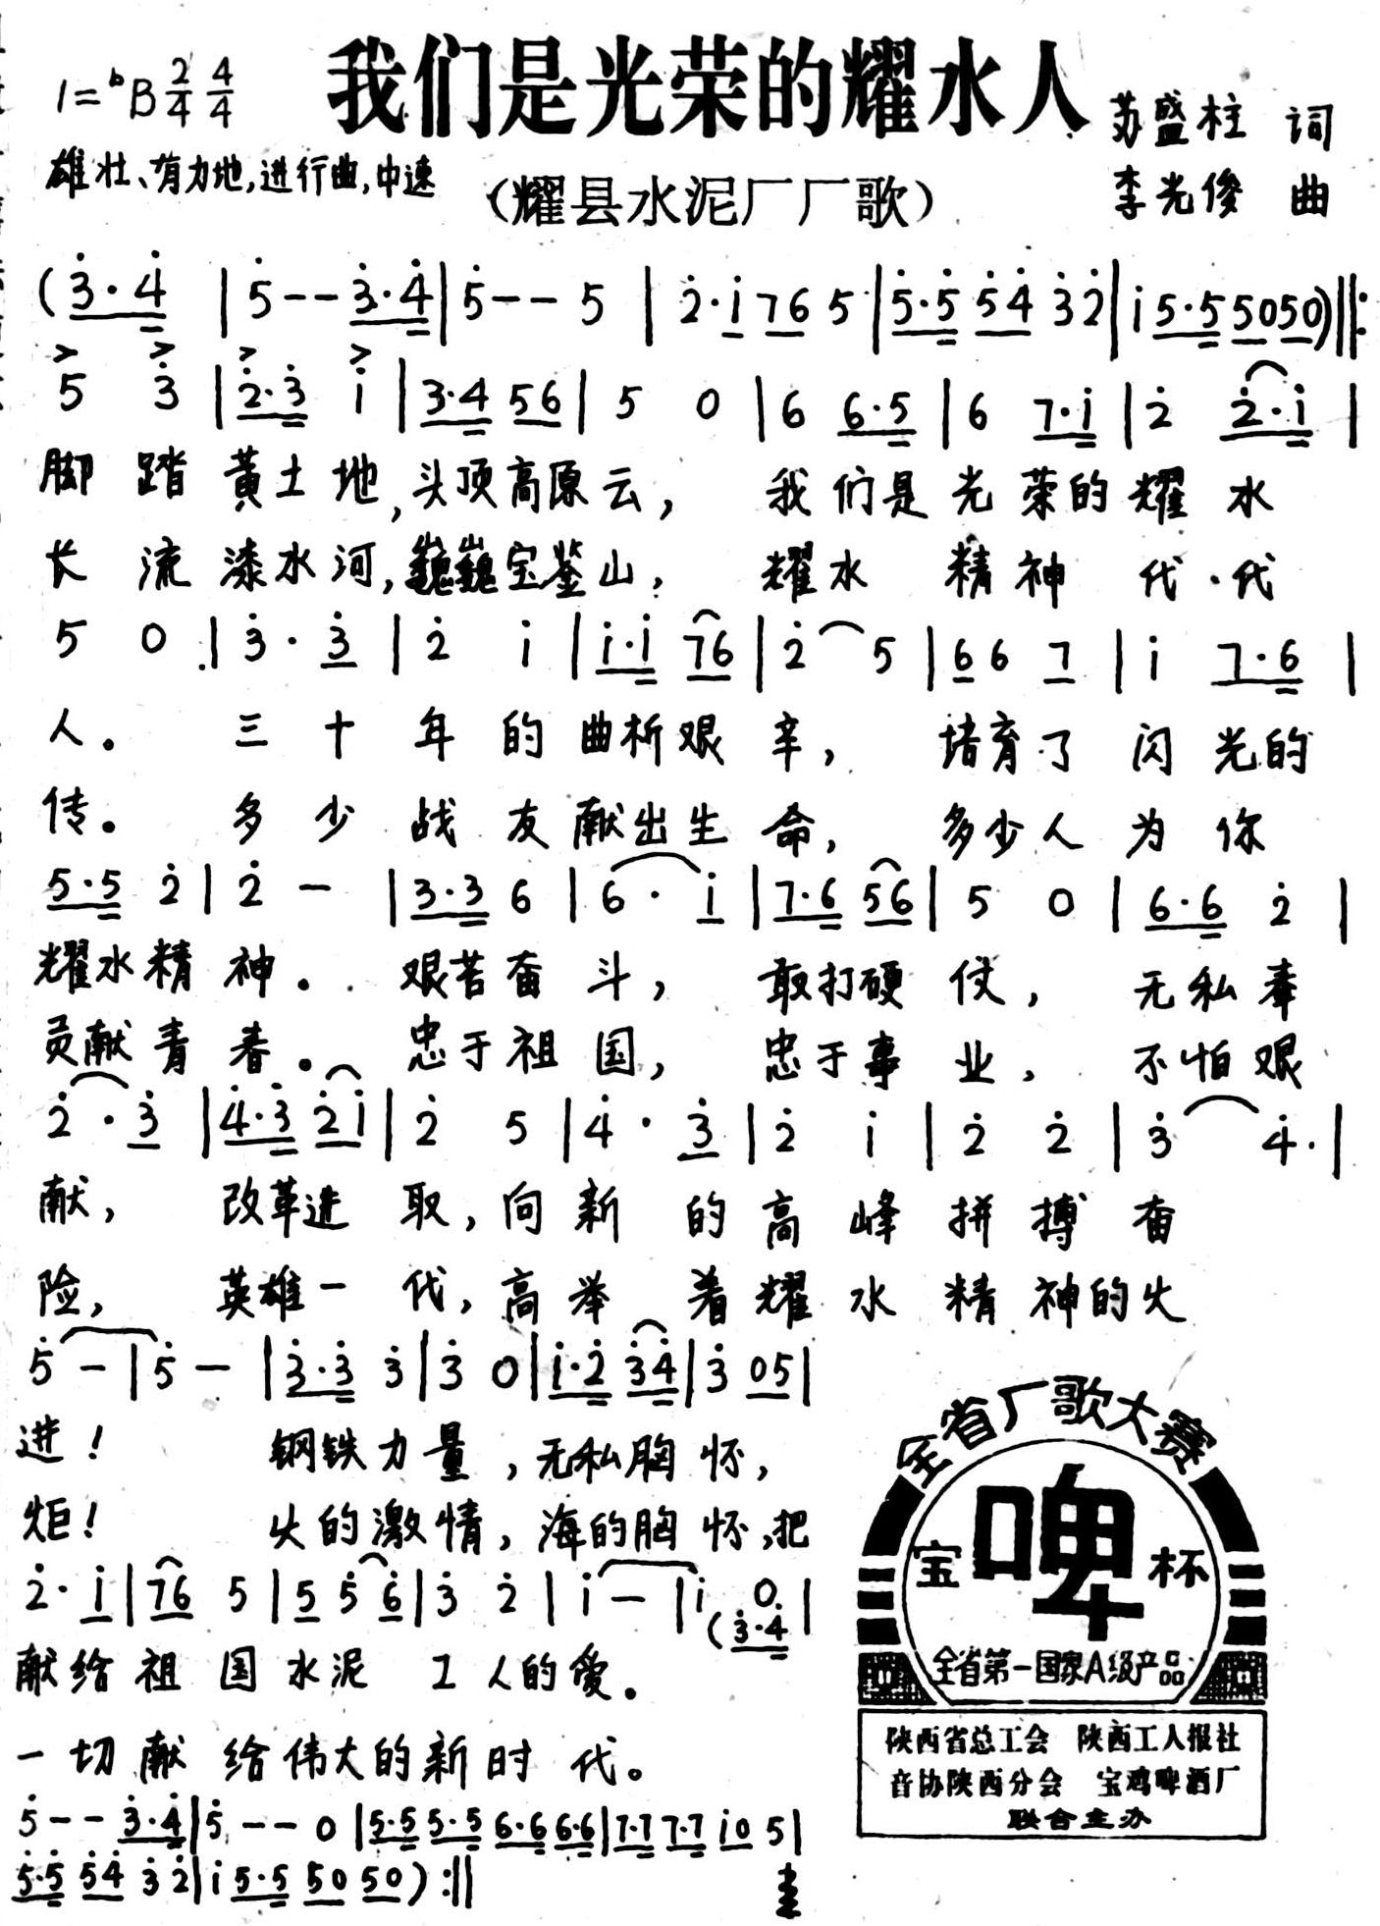 我们是光荣的耀水人
1=ᵇB 2/4 4/4
苏盛柱 词
雄壮、有力地,进行曲,中速
(耀县水泥厂厂歌)
李光俊 曲
(3̇·4̇ | 5̇--3̇·4̇ | 5̇--5 | 2̇·i 76 5 | 5̇·5̇ 5̇4̇ 3̇2̇ | i 5·5 5050) ‖:
5 3̇ | 2̇·3̇ i | 3·4 56 | 5 0 | 6 6·5 | 6 7·i | 2̇ 2̇·i |
脚踏黄土地,头顶高原云, 我们是光荣的耀水
长流漆水河,巍巍宝鉴山, 耀水精神代代
5 0 | 3̇·3̇ | 2̇ i | i·i 76 | 2̇ 5 | 6 6 7 | i 7·6 |
人。 三十年的曲析艰辛, 培育了闪光的
传。 多少战友献出生命, 多少人为你
5·5 2̇ | 2̇ - | 3·3 6 | 6·i | 7·6 56 | 5 0 | 6·6 2̇ |
耀水精神。 艰苦奋斗, 敢打硬仗, 无私奉
贡献青春。 忠于祖国, 忠于事业, 不怕艰
2̇·3̇ | 4̇·3̇ 2̇i | 2̇ 5 | 4̇·3̇ | 2̇ i | 2̇ 2̇ | 3̇ 4̇· |
献, 改革进取,向新的高峰拼搏奋
险, 英雄一代,高举着耀水精神的火
5̇ - | 5̇ - | 3̇·3̇ 3̇ | 3̇ 0 | i·2̇ 3̇4̇ | 3̇ 05 |
进! 钢铁力量,无私胸怀,
炬! 火的激情,海的胸怀,把
2̇·i | 76 5 | 5 5 6 | 3̇ 2̇ | i - | i 0 |
(3̇·4̇
献给祖国水泥工人的爱。
一切献给伟大的新时代。
5̇--3̇·4̇ | 5̇--0 | 5·5 5·5 6·6 6·6 | 7·7 7·7 i0 5 |
5̇·5̇ 5̇4̇ 3̇ 2̇ | i 5·5 50 50) :‖
全省厂歌大赛
宝啤杯
全省第一国家A级产品
陕西省总工会 陕西工人报社
音协陕西分会 宝鸡啤酒厂
联合主办